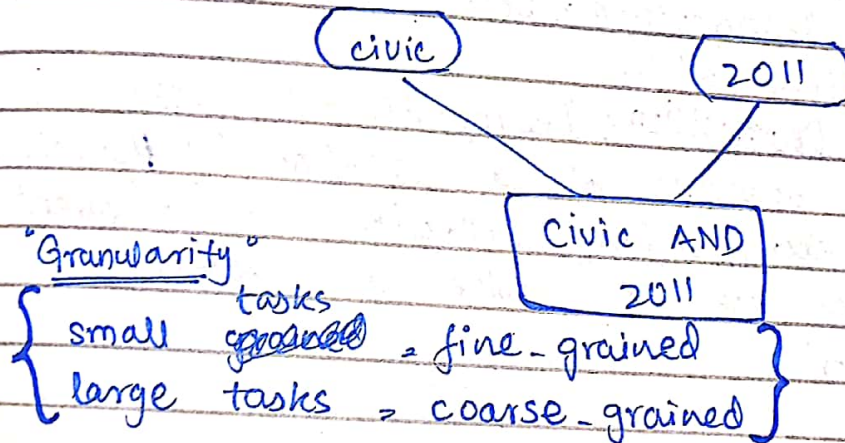 civic
2011
Civic AND
2011
"Granularity"
tasks
small = fine-grained
large tasks = coarse-grained